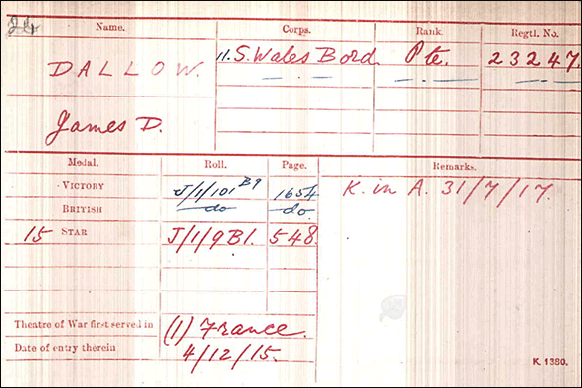 Name. Corps. Rank. Regtl. No.
DALLOW. 11. S. Wales Bord Pte. 23247.
James D.
Medal. Roll. Page. Remarks.
VICTORY J/1/101 B9 1654 K. in A. 31/7/17.
BRITISH do do.
15 STAR J/1/9B1. 548.
Theatre of War first served in (1) France.
Date of entry therein 4/12/15.
K 1380.